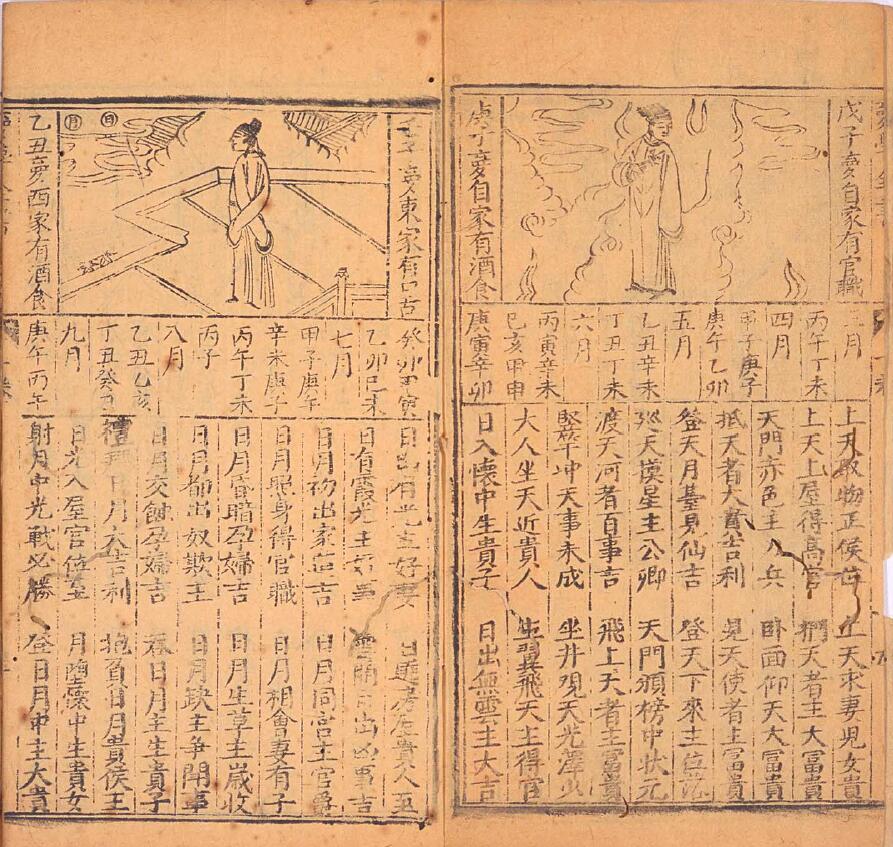 戊子夢自家有官職
庚子夢自家有酒食
三月
丙午丁未
四月
甲子庚子
庚午乙卯
五月
乙丑辛未
丁丑丁未
六月
丙寅辛未
己亥甲申
庚寅辛卯
上天取物正侯位 上天求妻兒女貴
上天上屋得高官 捫天者主大富貴
天門赤色主 兵 臥面仰天大富貴
抵天者大貴吉利 見天使者主富貴
登天月臺見仙吉 登天下來主位
巡天摸星主公卿 天門頒榜中狀元
渡天河者百事吉 飛上天者主富貴
天事未成 坐井現天光澤少
大人坐天近貴人 生翼飛天主得官
日入懷中生貴子 日出無雲主大吉
夢東家有口舌
日
月
乙丑夢西家有酒食
癸卯甲寅
乙卯己未
七月
甲子庚午
辛未庚子
丙午丁未
丙子
八月
乙丑乙亥
丁丑癸丑
九月
庚午丙午
日出有光主好妻 貴人至
日有霞光主好事 雲開日出凶事吉
日月初出家莊吉 日月同宮主官爵
日月照身得官職 日月相會妻有子
日月昏暗孕婦吉 日月生草主歲收
日月都出奴欺主 日月缺主爭鬧事
日月交蝕孕婦吉 看日月主生貴子
禮拜日月大吉利 抱負日月貴侯王
日光入屋官位至 月墮懷中生貴女
射月中光戰必勝 登日月中主大貴